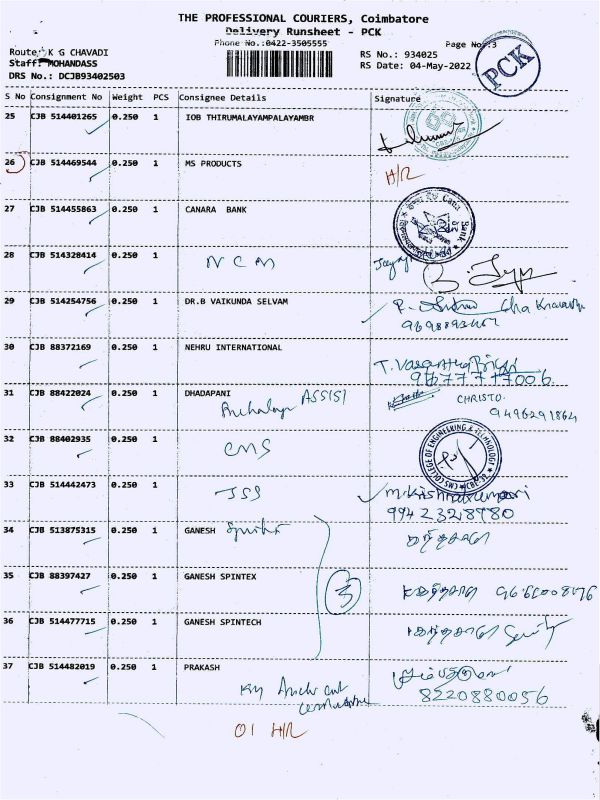 THE PROFESSIONAL COURIERS, Coimbatore
Delivery Runsheet - PCK
Phone No.:0422-3505555
Page No.:3
Route: K G CHAVADI
Staff: MOHANDASS
RS No.: 934025
DRS No.: DCJB93402503
RS Date: 04-May-2022
PCK
S No Consignment No Weight PCS Consignee Details Signature
25 CJB 514401265 0.250 1 IOB THIRUMALAYAMPALAYAMBR
26 CJB 514469544 0.250 1 MS PRODUCTS H/R
27 CJB 514455863 0.250 1 CANARA BANK
28 CJB 514328414 0.250 1 NCM
29 CJB 514254756 0.250 1 DR.B VAIKUNDA SELVAM
30 CJB 88372169 0.250 1 NEHRU INTERNATIONAL
T. Vasantha
31 CJB 88422024 0.250 1 DHADAPANI CHRISTO.
ASSISI 9496291864
32 CJB 88402935 0.250 1 CMS
CMS COLLEGE OF ENGINEERING & TECHNOLOGY
33 CJB 514442473 0.250 1 JSS M. Krishnakumari
9942328980
34 CJB 513875315 0.250 1 GANESH
35 CJB 88397427 0.250 1 GANESH SPINTEX
3
36 CJB 514477715 0.250 1 GANESH SPINTECH
37 CJB 514482019 0.250 1 PRAKASH
8220880056
01 H/R